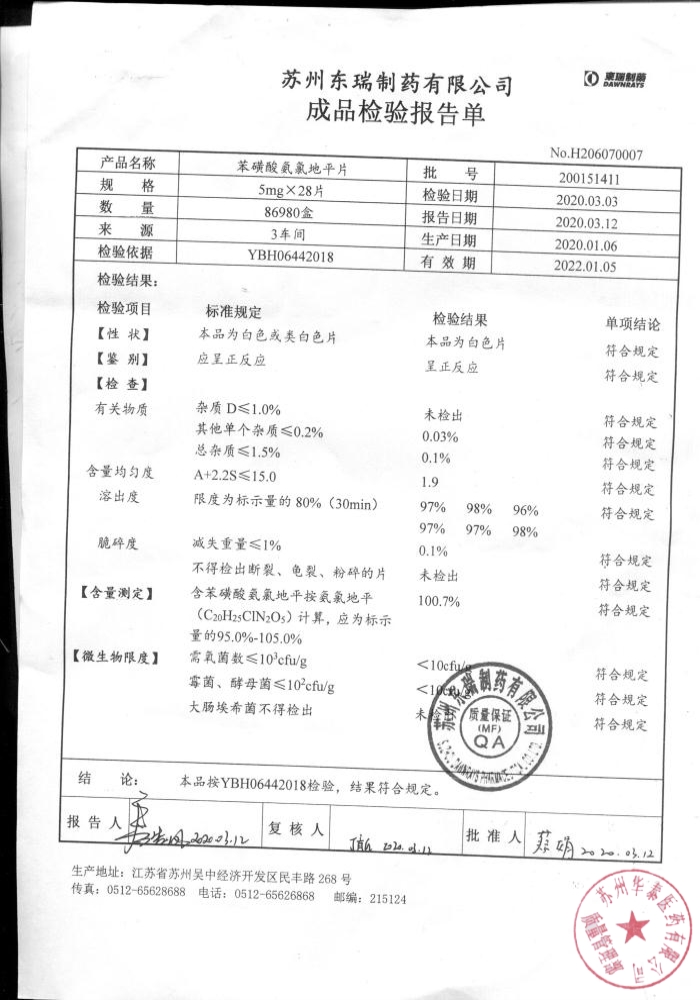 苏州东瑞制药有限公司
東瑞制藥
DAWNRAYS
成品检验报告单
No.H206070007
产品名称 苯磺酸氨氯地平片 批 号 200151411
规 格 5mg×28片 检验日期 2020.03.03
数 量 86980盒 报告日期 2020.03.12
来 源 3车间 生产日期 2020.01.06
检验依据 YBH06442018 有 效 期 2022.01.05
检验结果：
检验项目 标准规定 检验结果 单项结论
【性 状】 本品为白色或类白色片 本品为白色片 符合规定
【鉴 别】 应呈正反应 呈正反应 符合规定
【检 查】
有关物质 杂质 D≤1.0% 未检出 符合规定
其他单个杂质≤0.2% 0.03% 符合规定
总杂质≤1.5% 0.1% 符合规定
含量均匀度 A+2.2S≤15.0 1.9 符合规定
溶出度 限度为标示量的 80%（30min） 97% 98% 96% 符合规定
97% 97% 98%
脆碎度 减失重量≤1% 0.1% 符合规定
不得检出断裂、龟裂、粉碎的片 未检出 符合规定
【含量测定】 含苯磺酸氨氯地平按氨氯地平 100.7% 符合规定
（C20H25ClN2O5）计算，应为标示
量的95.0%-105.0%
【微生物限度】 需氧菌数≤10³cfu/g <10cfu/g 符合规定
霉菌、酵母菌≤10²cfu/g <10cfu/g 符合规定
大肠埃希菌不得检出 未检出 符合规定
苏州东瑞制药有限公司
质量保证
(MF)
QA
结 论： 本品按YBH06442018检验，结果符合规定。
报 告 人 2020.03.12 复 核 人 2020.03.12 批 准 人 2020.03.12
生产地址：江苏省苏州吴中经济开发区民丰路 268 号
传真：0512-65628688 电话：0512-65626868 邮编：215124
苏州华泰医药有限公司
质量管理部